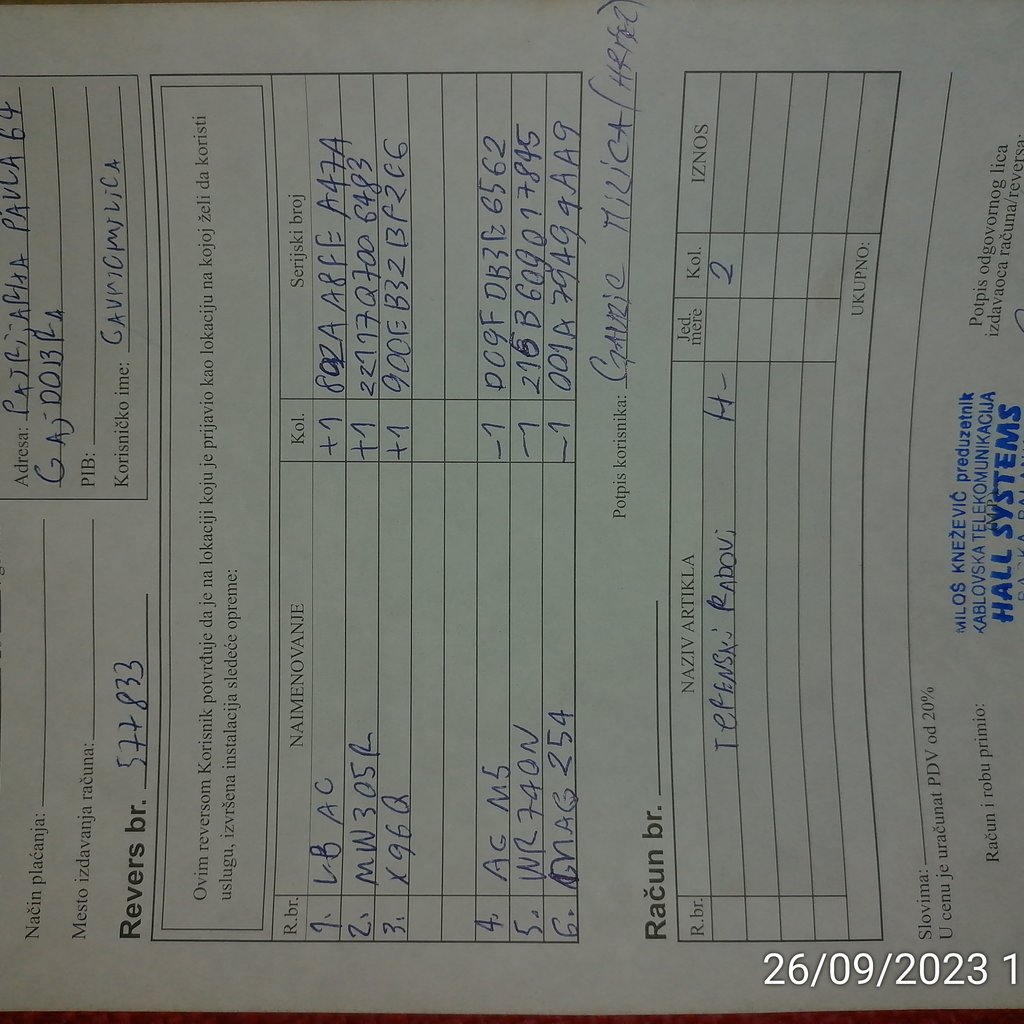 Adresa: PATRIJARHA PAVLA 64
GAJDOBRA
PIB:
Korisničko ime: GAVNICMILICA
Način plaćanja:
Mesto izdavanja računa:
Revers br. 577833
Ovim reversom Korisnik potvrđuje da je na lokaciji koju je prijavio kao lokaciju na kojoj želi da koristi
uslugu, izvršena instalacija sledeće opreme:
R.br. NAIMENOVANJE Kol. Serijski broj
1. LB AC +1
2. MW305R +1 2217Q7006483
3. X96Q +1 900EB32BF2C6
4. AG M5 -1 D09FDB3E6562
5. WR740N -1
6. 254 -1
Potpis korisnika: MILICA
Račun br.
R.br. NAZIV ARTIKLA Jed. mere Kol. IZNOS
TERENSKI RADOVI H- 2
UKUPNO:
Slovima:
U cenu je uračunat PDV od 20%
Račun i robu primio:
Potpis odgovornog lica
izdavaoca računa/reversa:
MILOŠ KNEŽEVIĆ preduzetnik
KABLOVSKA TELEKOMUNIKACIJA
HALL SYSTEMS
26/09/2023 1